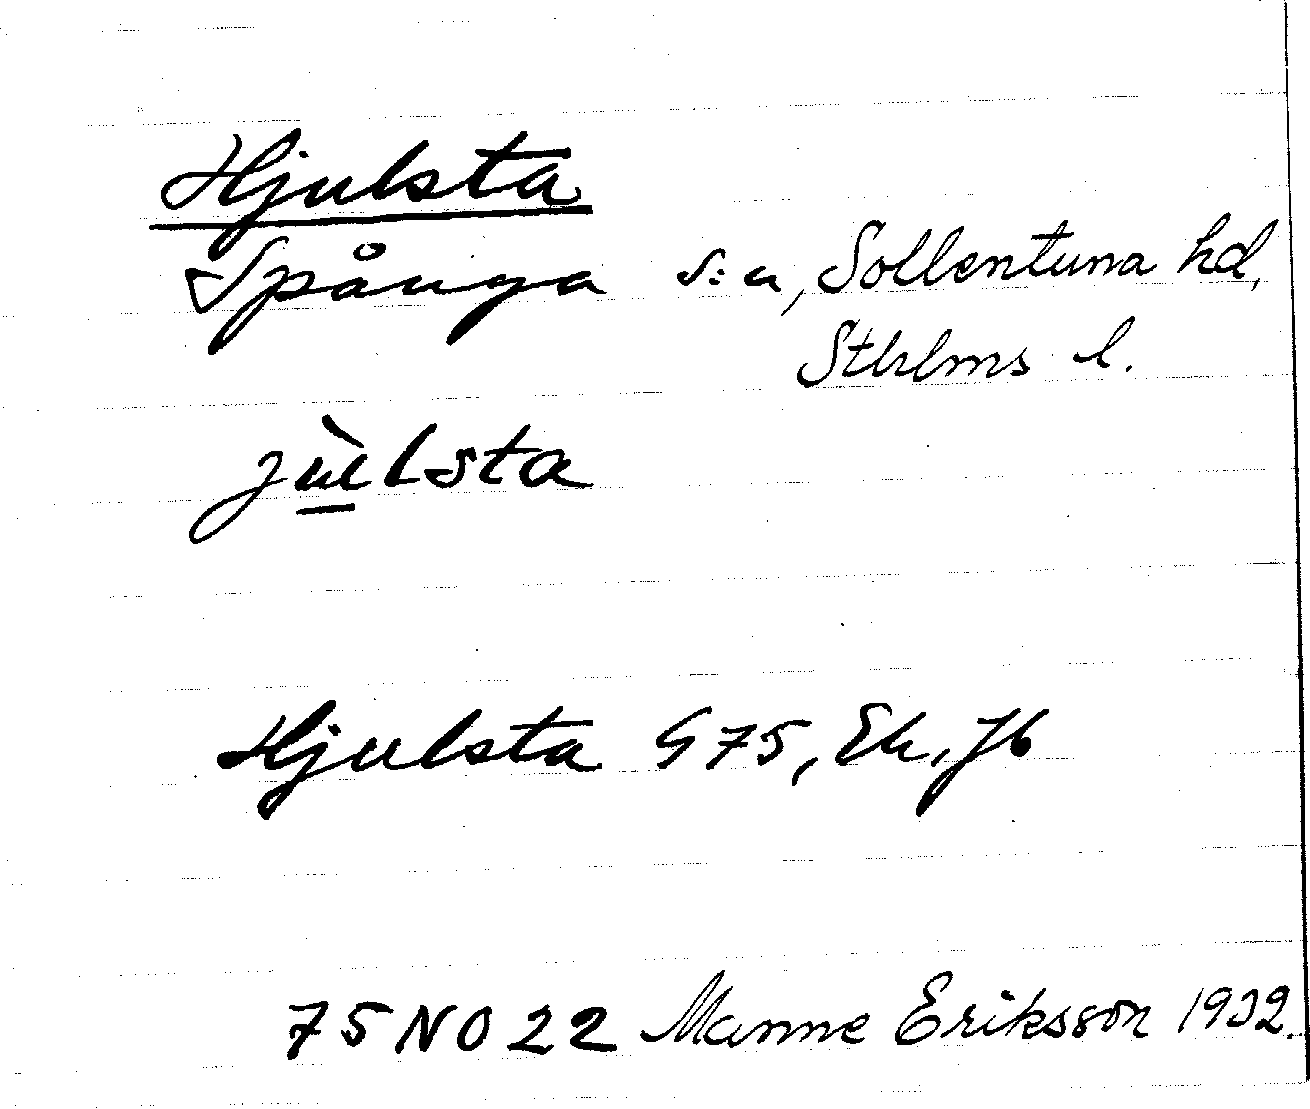 Hjulsta
Spånga s:n, Sollentuna hd,
Sthlms l.
jùlsta
Hjulsta G 75, Ek, Jb
75 NO 22 Manne Eriksson 1932.